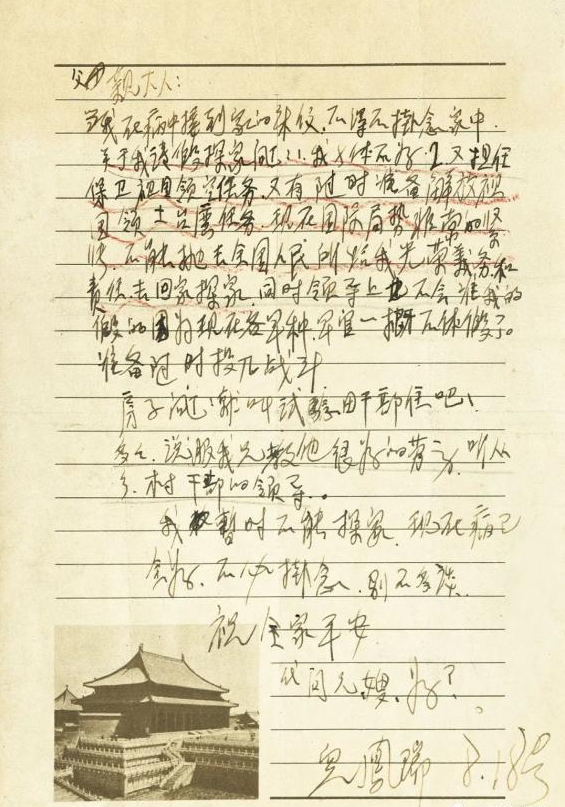 父母亲大人：
当我在病中接到家的来信，不得不掛念家中.
关于我请假探家问题：我身体不好.又担任
保卫祖国领空任务，又有随时准备解放祖
国领土台湾任务.现在国际局势非常的紧
张，不能抛去全国人民所给我光荣义务和
责任去回家探家，同时领导上也不会准我的
假的因为现在各军种，军官一择不休假了。
准备随时投入战斗
房子问题就叫试验田干部住吧！
说服我兄教他很好的劳动，听从
乡.村干部的领导。
我暂时不能探家，现在病已
全好.不必掛念.别不多谈.
祝全家平安
代问兄嫂好？
儿凤瑞 8.18号